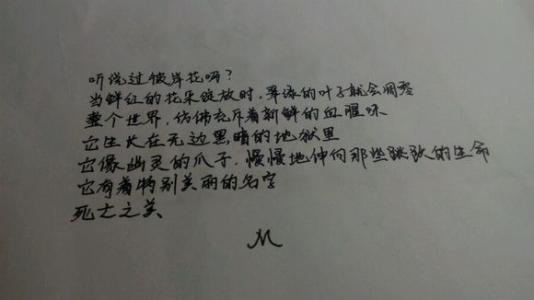 听说过彼岸花吗？
当鲜红的花朵绽放时，翠绿的叶子就会凋零
整个世界，仿佛充斥着新鲜的血腥味
它生长在无边黑暗的地狱里
它像幽灵的爪子，慢慢地伸向那些跳跃的生命
它有着特别美丽的名字
死亡之美
M